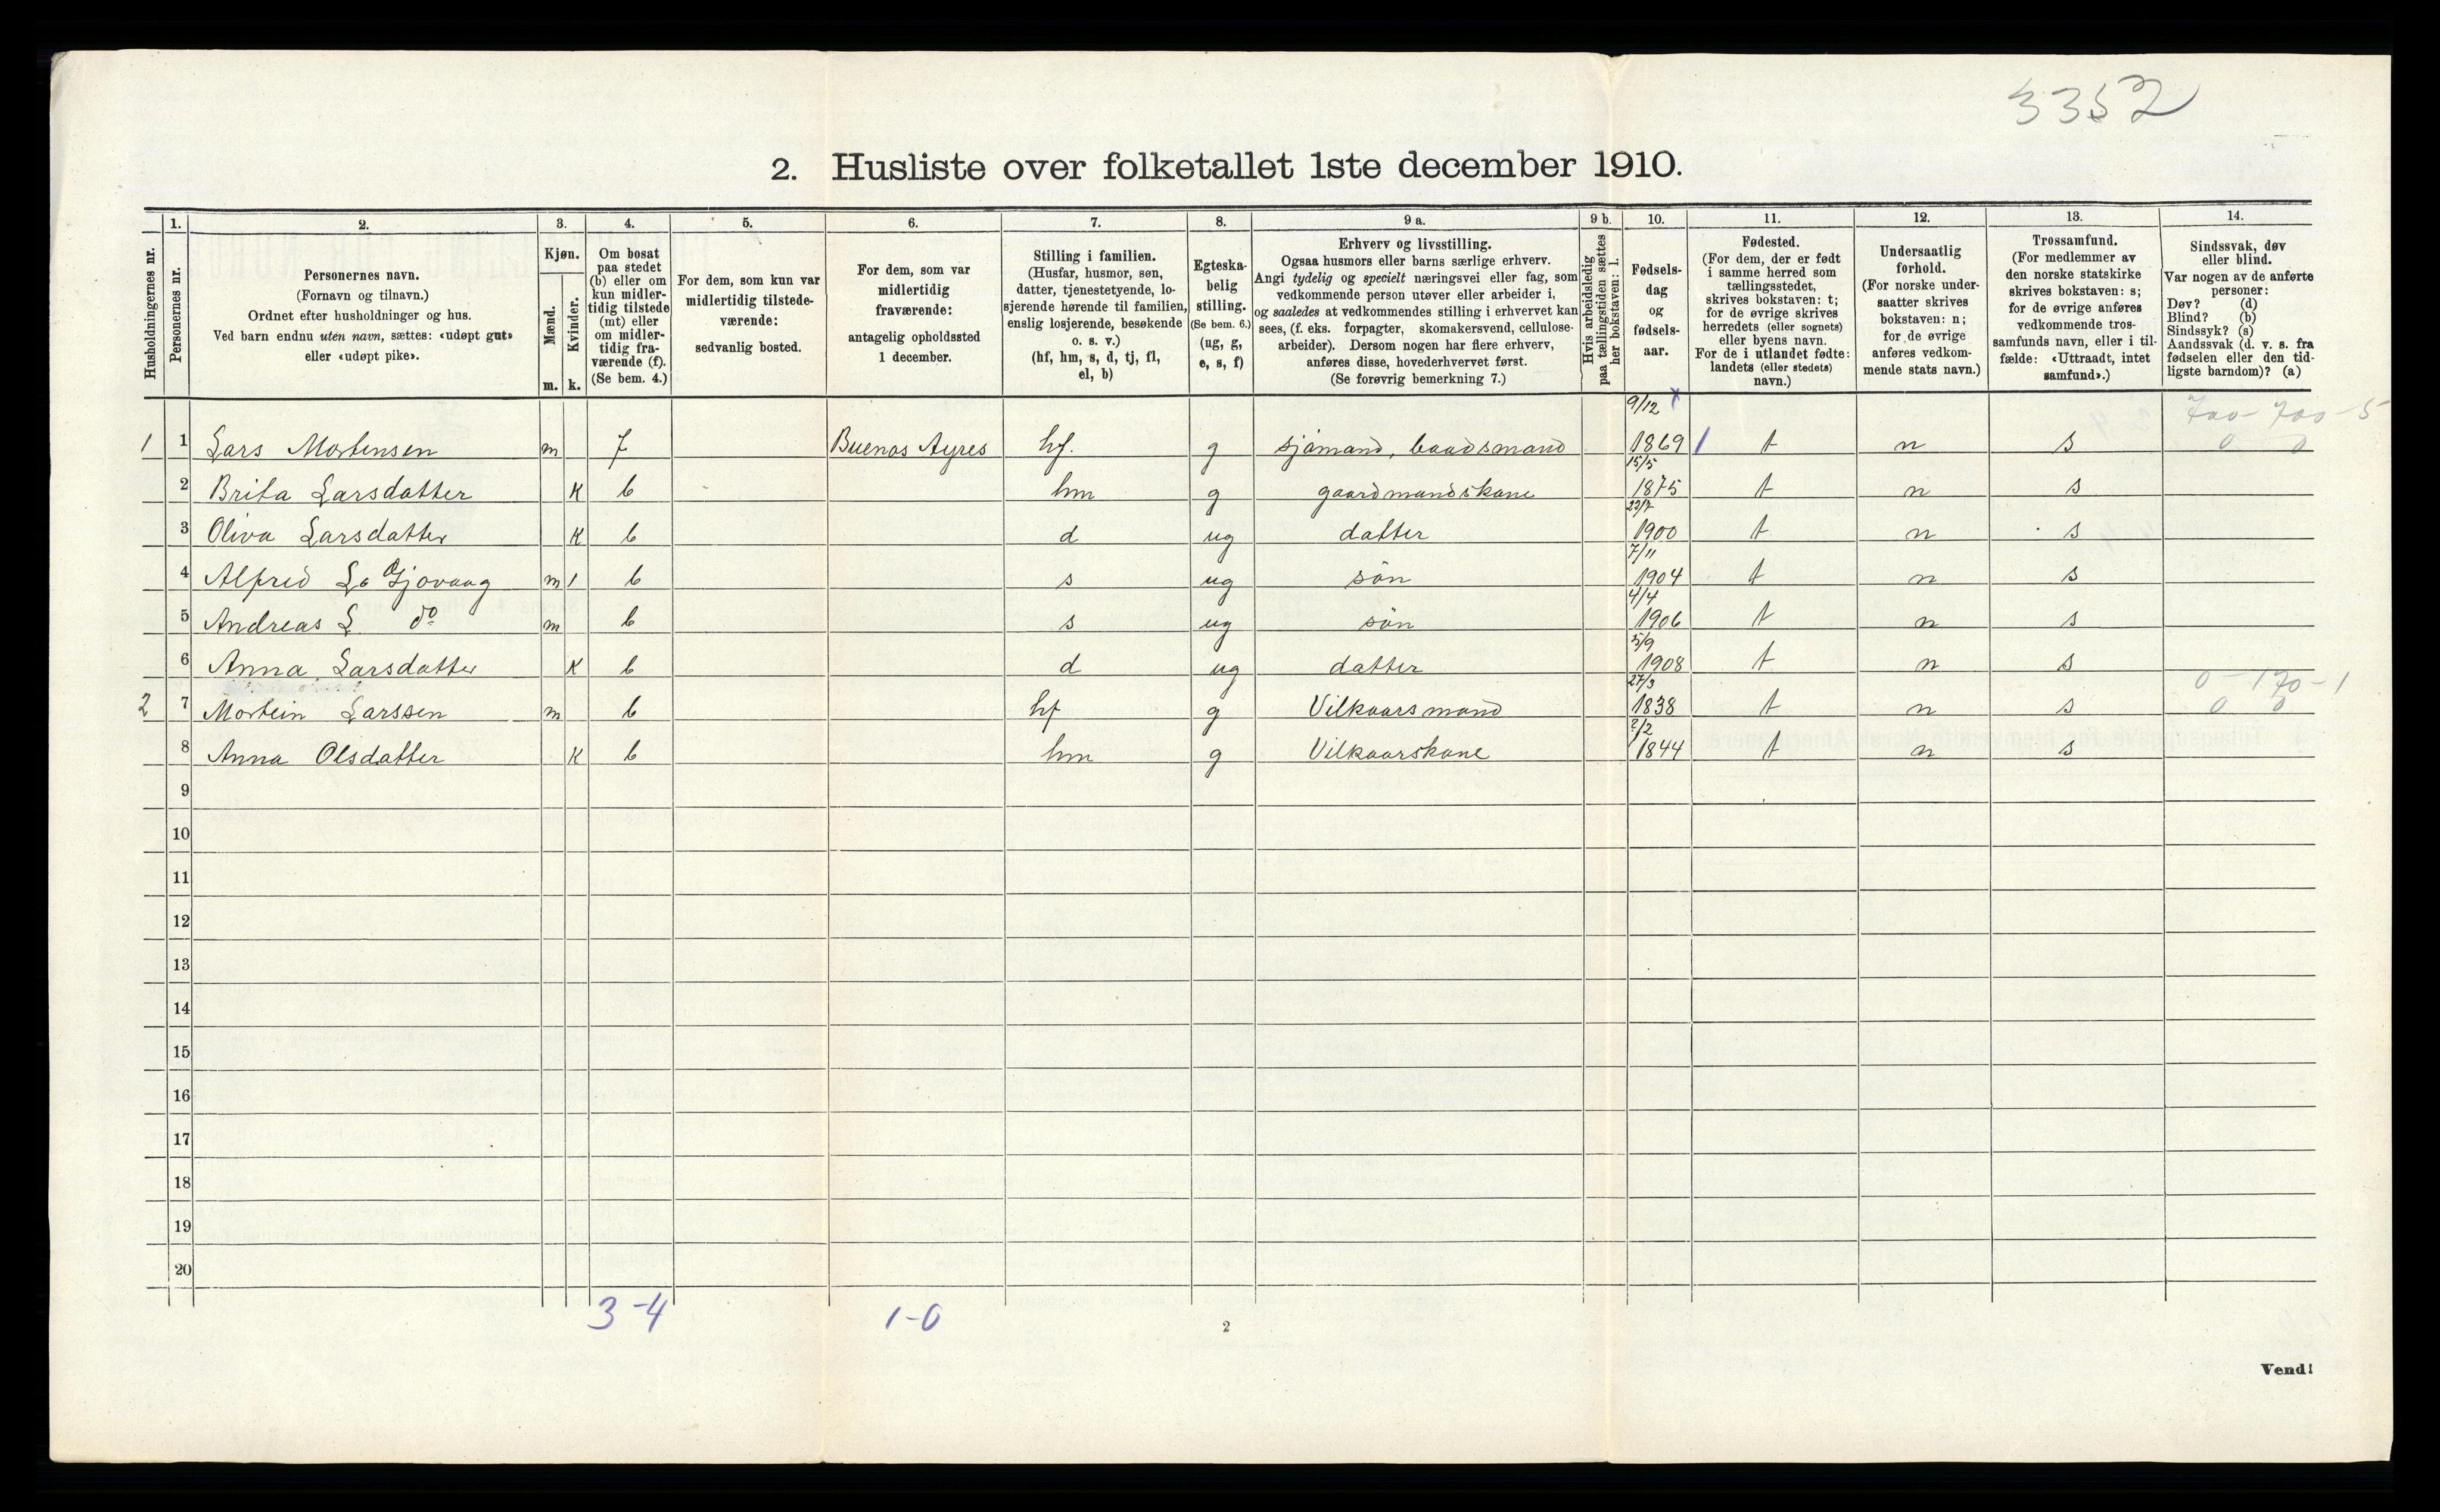 3352
2. Husliste over folketallet 1ste december 1910.
Husholdningernes nr.
1.
Personernes nr.
2.
Personernes navn.
(Fornavn og tilnavn.)
Ordnet efter husholdninger og hus.
Ved barn endnu uten navn, sættes: «udøpt gut»
eller «udøpt pike».
3.
Kjøn.
Mænd.
Kvinder.
m. k.
4.
Om bosat
paa stedet
(b) eller om
kun midler-
tidig tilstede
(mt) eller
om midler-
tidig fra-
værende (f).
(Se bem. 4.)
5.
For dem, som kun var
midlertidig tilstede-
værende:
sedvanlig bosted.
6.
For dem, som var
midlertidig
fraværende:
antagelig opholdssted
1 december.
7.
Stilling i familien.
(Husfar, husmor, søn,
datter, tjenestetyende, lo-
sjerende hørende til familien,
enslig losjerende, besøkende
o. s. v.)
(hf, hm, s, d, tj, fl,
el, b)
8.
Egteska-
belig
stilling.
(Se bem. 6.)
(ug, g,
e, s, f)
9 a.
Erhverv og livsstilling.
Ogsaa husmors eller barns særlige erhverv.
Angi tydelig og specielt næringsvei eller fag, som
vedkommende person utøver eller arbeider i,
og saaledes at vedkommendes stilling i erhvervet kan
sees, (f. eks. forpagter, skomakersvend, cellulose-
arbeider). Dersom nogen har flere erhverv,
anføres disse, hovederhvervet først.
(Se forøvrig bemerkning 7.)
9 b.
Hvis arbeidsledig
paa tællingstiden sættes
her bokstaven: l.
10.
Fødsels-
dag
og
fødsels-
aar.
11.
Fødested.
(For dem, der er født
i samme herred som
tællingsstedet,
skrives bokstaven: t;
for de øvrige skrives
herredets (eller sognets)
eller byens navn.
For de i utlandet fødte:
landets (eller stedets)
navn.)
12.
Undersaatlig
forhold.
(For norske under-
saatter skrives
bokstaven: n;
for de øvrige
anføres vedkom-
mende stats navn.)
13.
Trossamfund.
(For medlemmer av
den norske statskirke
skrives bokstaven: s;
for de øvrige anføres
vedkommende tros-
samfunds navn, eller i til-
fælde: «Uttraadt, intet
samfund».)
14.
Sindssvak, døv
eller blind.
Var nogen av de anførte
personer:
Døv? (d)
Blind? (b)
Sindssyk? (s)
Aandssvak (d. v. s. fra
fødselen eller den tid-
ligste barndom)? (a)
1 1 Lars Mortensen m f Buenos Ayres hf. g sjømand, baadsmand 9/12 1869 t n s
0 0
2 Brita Larsdatter K b hm g gaardmandskone 15/5 1875 t n s
3 Oliva Larsdatter K b d ug datter 22/7 1900 t n s
4 Alfred L. Gjovaag m b s ug søn 7/11 1904 t n s
5 Andreas L do m b s ug søn 4/4 1906 t n s
6 Anna Larsdatter K b d ug datter 5/9 1908 t n s
2 7 Mortein Larssen m b hf g Vilkaarsmand 27/3 1838 t n s
0 0
8 Anna Olsdatter K b hm g Vilkaarskone ?/2 1844 t n s
9
10
11
12
13
14
15
16
17
18
19
20
3-4 1-0
2
Vend!